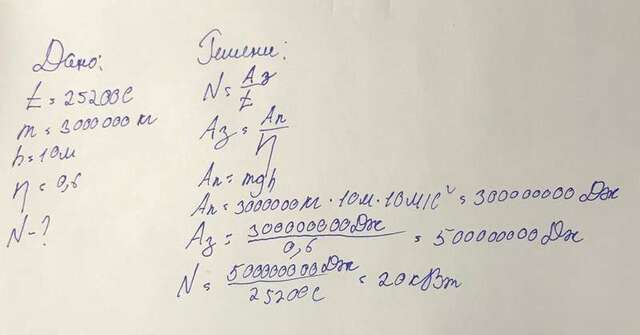 Дано:
t = 25200с
m = 3000000 кг
h = 10м
η = 0,6
N - ?
Решени:
N = Aз/t
Aз = Aп/η
Aп = mgh
Aп = 3000000кг · 10м · 10м/с² = 300000000 Дж
Aз = 300000000Дж/0,6 = 500000000 Дж
N = 500000000Дж/25200с = 20кВт